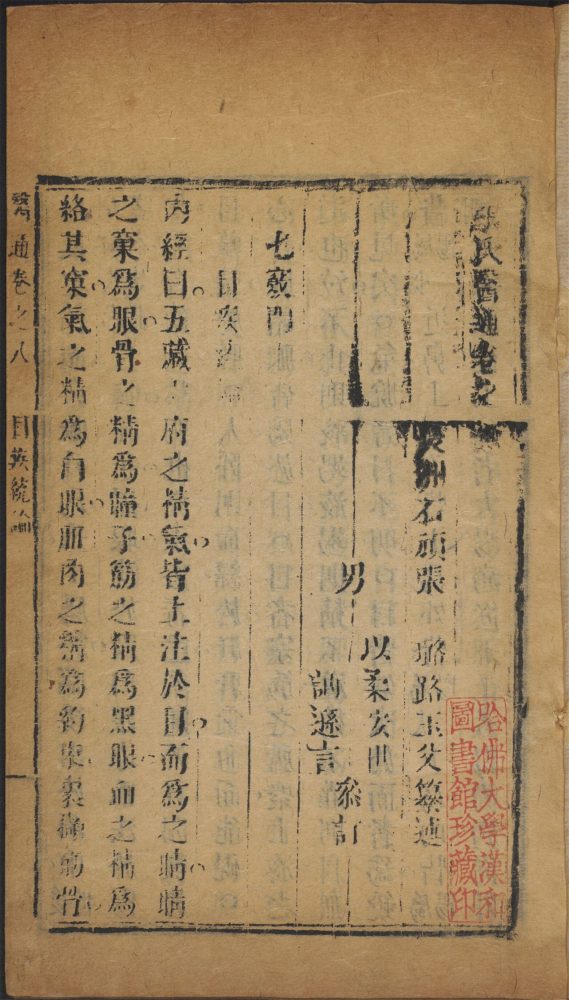 張氏醫通卷之
長洲石頑張　璐路玉父纂述
男　以柔安世　叅訂
訥遜言
七竅門
目疾
內經曰五藏六府之精氣皆上注於目而爲之睛睛
之窠爲眼骨之精爲瞳子筋之精爲黑眼血之精爲
絡其窠氣之精爲白眼肌肉之精爲約束裹擷筋骨
醫通卷之八　目疾統論
哈佛大學漢和
圖書館珍藏印